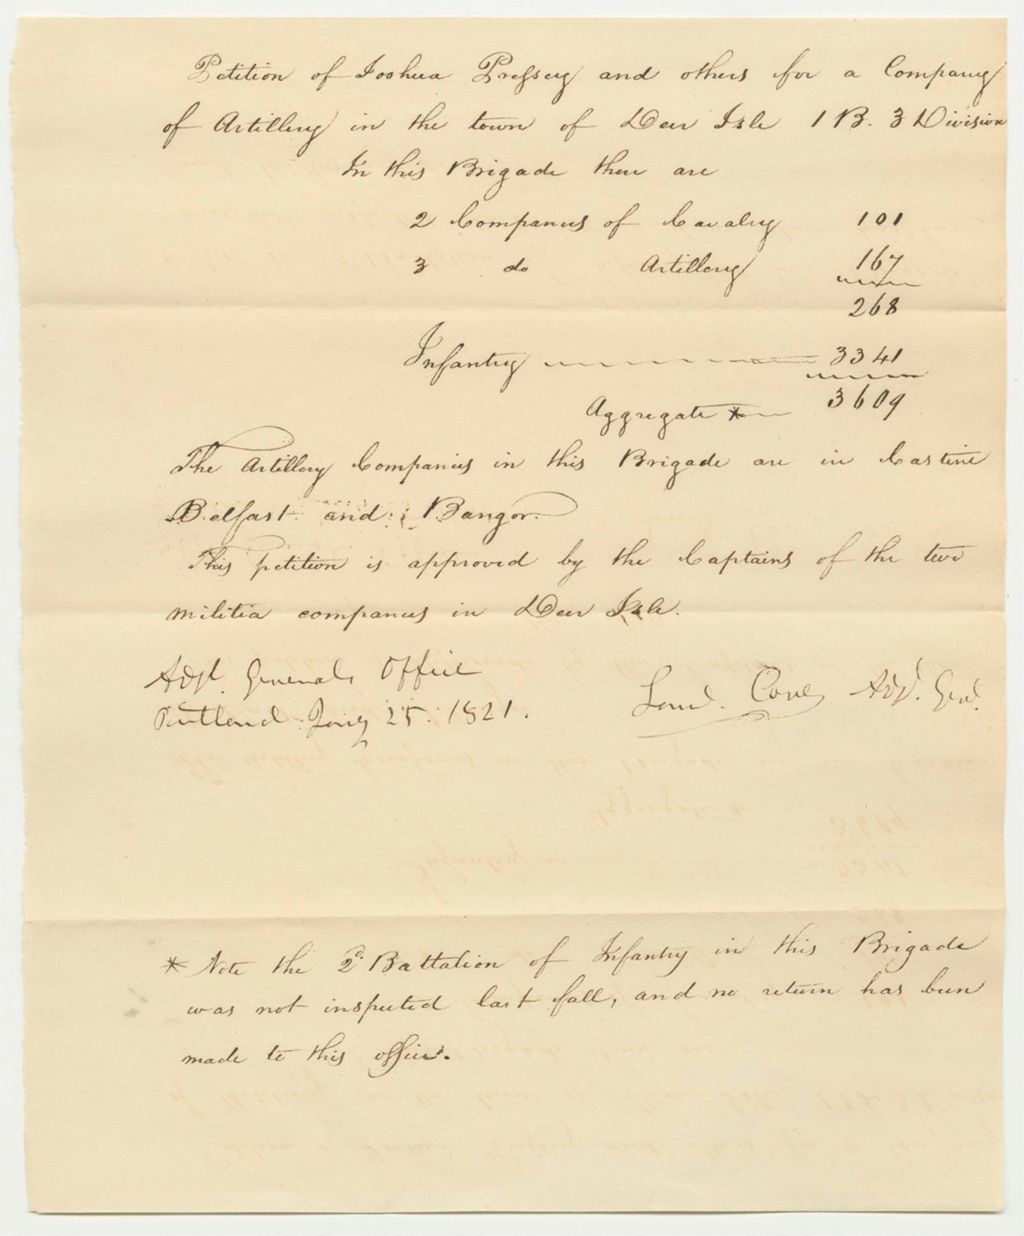 Petition of Joshua Pressey and others for a Company
of Artillery in the town of Deer Isle 1 B. 3 Division
In this Brigade there are
2 Companies of Cavalry 101
3 do Artillery 167
268
Infantry 3341
Aggregate * 3609
The Artillery Companies in this Brigade are in Castine
Belfast and Bangor.
This petition is approved by the Captains of the two
militia companies in Deer Isle.
Adjt. Generals Office
Portland Jany 25. 1821.
Saml. Cony Adjt. Genl.
* Note the 2d. Battalion of Infantry in this Brigade
was not inspected last fall, and no return has been
made to this office.